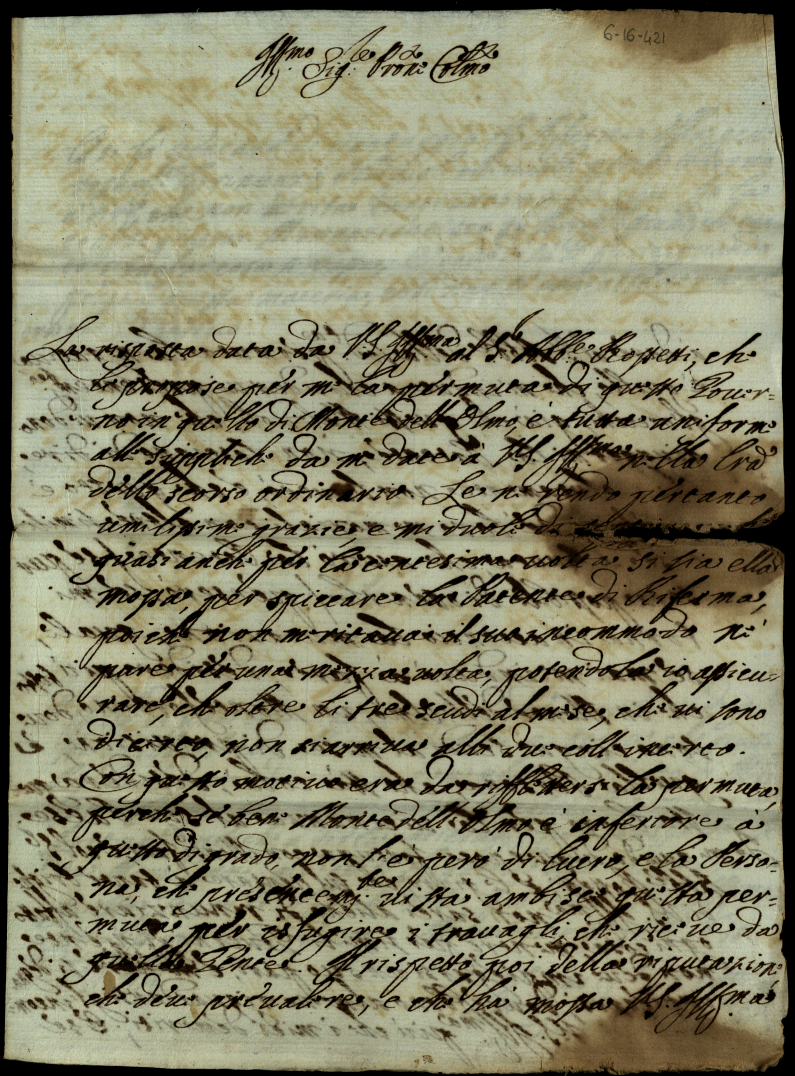 6-16-421
Ill.mo Sig.re Pron.e Col.mo
La risposta data da VS Ill.ma al S.r Abb.e Rospetti, che
li propose per me la permuta di questo Gouer=
no in quello di Monte dell'Olmo, è tutta uniforme
alle suppliche da me date à VS Ill.ma nella
dello scorso ordinario. Le ne rendo pertanto
umilissime grazie, e mi duole di
quasi anche per la centesima uolta si sia ella
mossa, per spiccare la Patente di Riferma,
poiche non meritaua il suo incommodo ne
pare per una mezza uolta, potendola io assicu=
rare, che oltre li tre scudi al mese, che ui sono
di certo, non si arriua alli due coll'incerto.
Con questo motiuo era da riflettersi la permuta,
perche se bene Monte dell'Olmo è inferiore à
questo di grado, non l'è però di lucro, e la Perso=
na, che presentem.te ui stà ambisce questa per=
muta per isfugire i trauagli, che riceue da
quella Gente. Il rispetto poi della riputazione
che deue preualere, e che hà mossa VS. Ill.ma